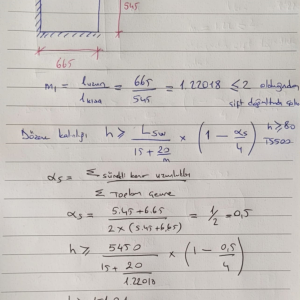 545
665
m₁ = l uzun / l kısa = 665 / 545 = 1.22018 ≤ 2 olduğundan
çift doğrultuda
Döşeme kalınlığı h ≥ Lsw / (15 + 20/m) × (1 - αs/4) h ≥ 80
TS500
αs = Σ sürekli kenar uzunlukları / Σ Toplam çevre
αs = (5.45 + 6.65) / (2 × (5.45 + 6.65)) = 1/2 = 0,5
h ≥ 5450 / (15 + 20/1.22018) × (1 - 0,5/4)